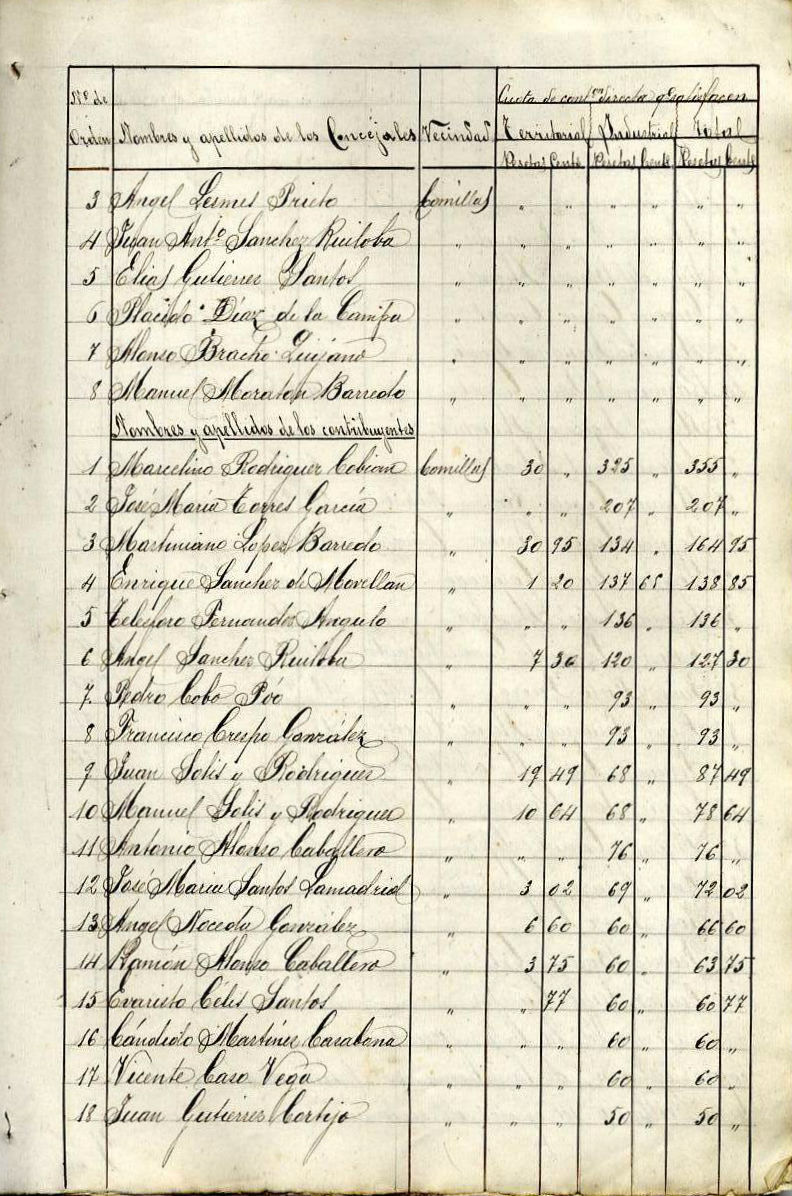 Nº de Orden Nombres y apellidos de los Concejales Vecindad Cuota de contón directa q. satisfacen
Territorial Industrial Total
Pesetas Cents Pesetas Cents Pesetas Cents
3 Angel Lesmes Prieto Comillas " " " " " "
4 Juan Antº Sanchez Ruiloba " " " " " " "
5 Elias Gutierrez Santos " " " " " " "
6 Placido Díaz de la Campa " " " " " " "
7 Alonso Bracho Quijano " " " " " " "
8 Manuel Moraton Barredo " " " " " " "
Nombres y apellidos de los contribuyentes
1 Marcelino Rodriguez Cobian Comillas 30 " 325 " 355 "
2 José Maria Torres García " " " 207 " 207 "
3 Martiniano Lopez Barredo " 30 95 134 " 164 95
4 Enrique Sanchez de Movellan " 1 20 137 65 138 85
5 Telesforo Fernandez Angulo " " " 136 " 136 "
6 Angel Sanchez Ruiloba " 7 30 120 " 127 30
7. Pedro Cobo Póo " " " 93 " 93 "
8 Francisco Crespo González " " " 93 " 93 "
9 Juan Solis y Rodriguez " 19 49 68 " 87 49
10 Manuel Solis y Rodriguez " 10 64 68 " 78 64
11 Antonio Alonso Caballero " " " 76 " 76 "
12 José Maria Santos Lamadrid " 3 02 69 " 72 02
13 Angel Noceda González " 6 60 60 " 66 60
14 Ramón Alonso Caballero " 3 75 60 " 63 75
15 Evaristo Célis Santos " " 77 60 " 60 77
16 Cándido Martínez Carabana " " " 60 " 60 "
17 Vicente Caso Vega " " " 60 " 60 "
18 Juan Gutierrez Cortijo " " " 50 " 50 "